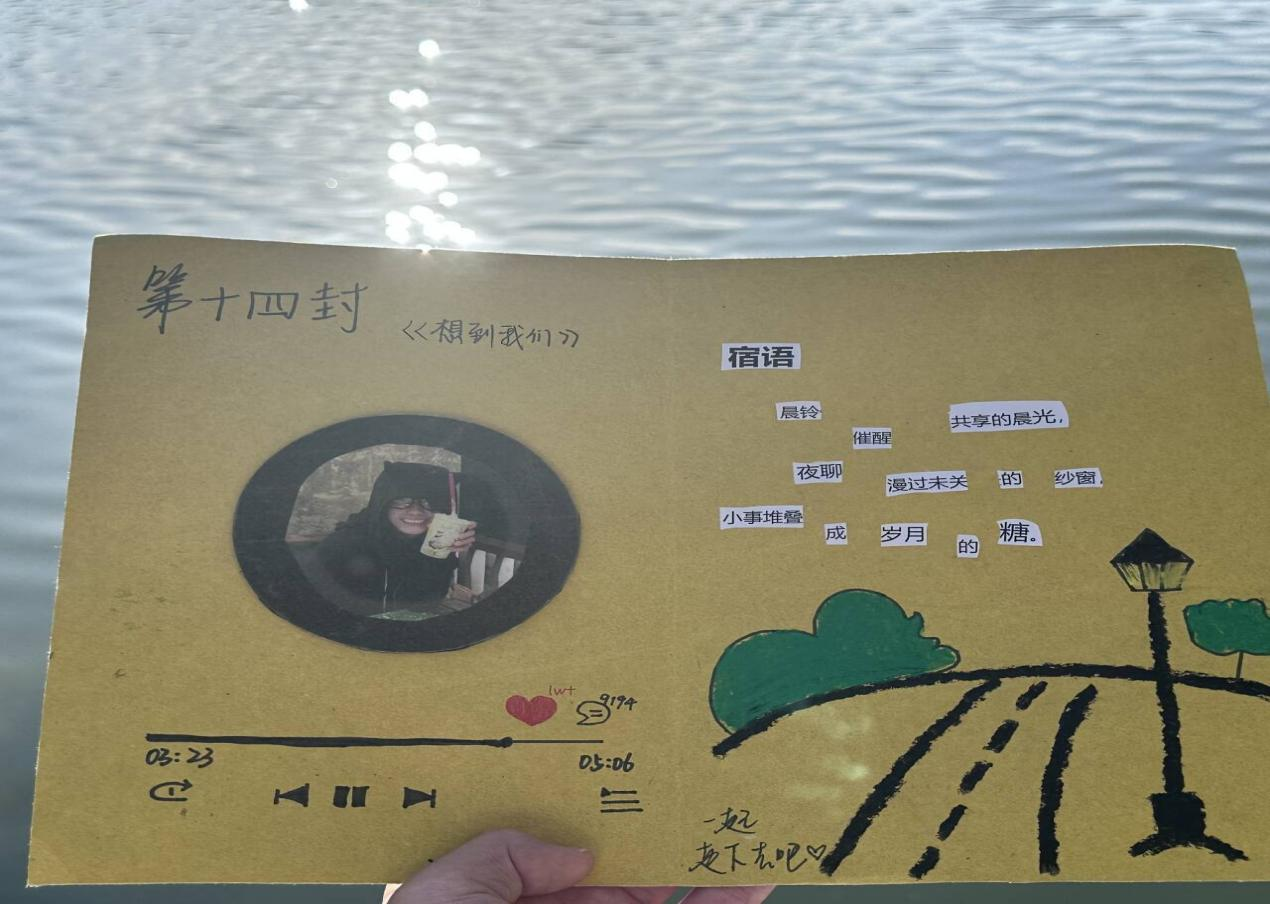 第十四封
<<想到我们>>
1w+
9194
03:23
05:06
宿语
晨铃 催醒 共享的晨光,
夜聊 漫过未关 的 纱窗,
小事堆叠 成 岁月 的 糖。
一起
走下去吧♡